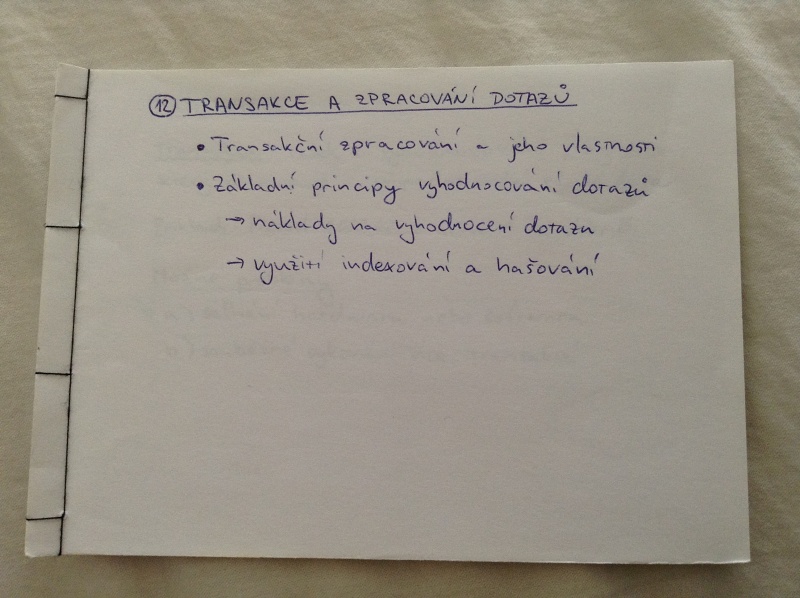 12 TRANSAKCE A ZPRACOVÁNÍ DOTAZŮ
• Transakční zpracování a jeho vlastnosti
• Základní principy vyhodnocování dotazů
→ náklady na vyhodnocení dotazu
→ využití indexování a hašování